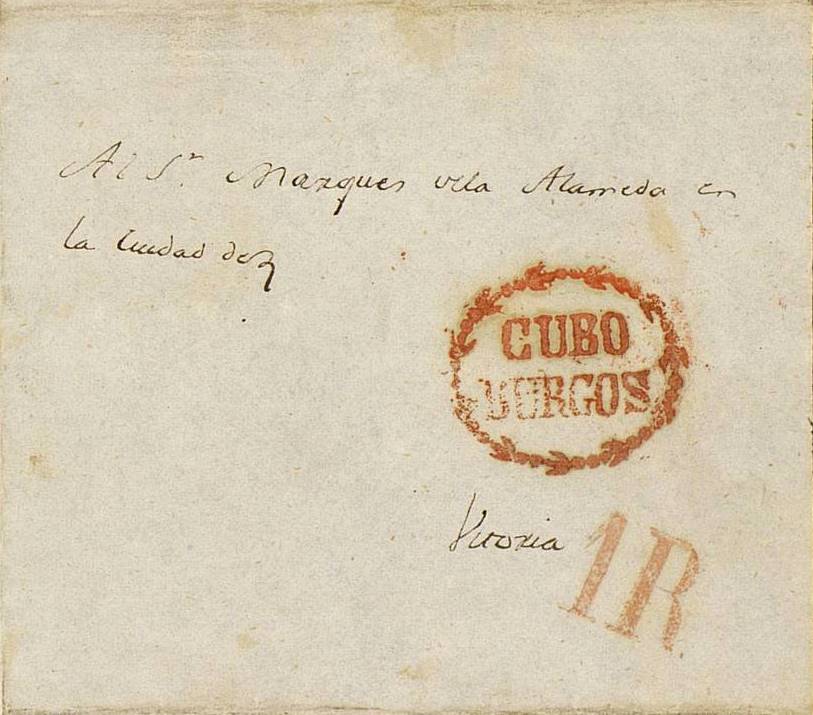 Al S.r Marques dela Alameda en
la Ciudad de
CUBO
BURGOS
Vitoria
1R